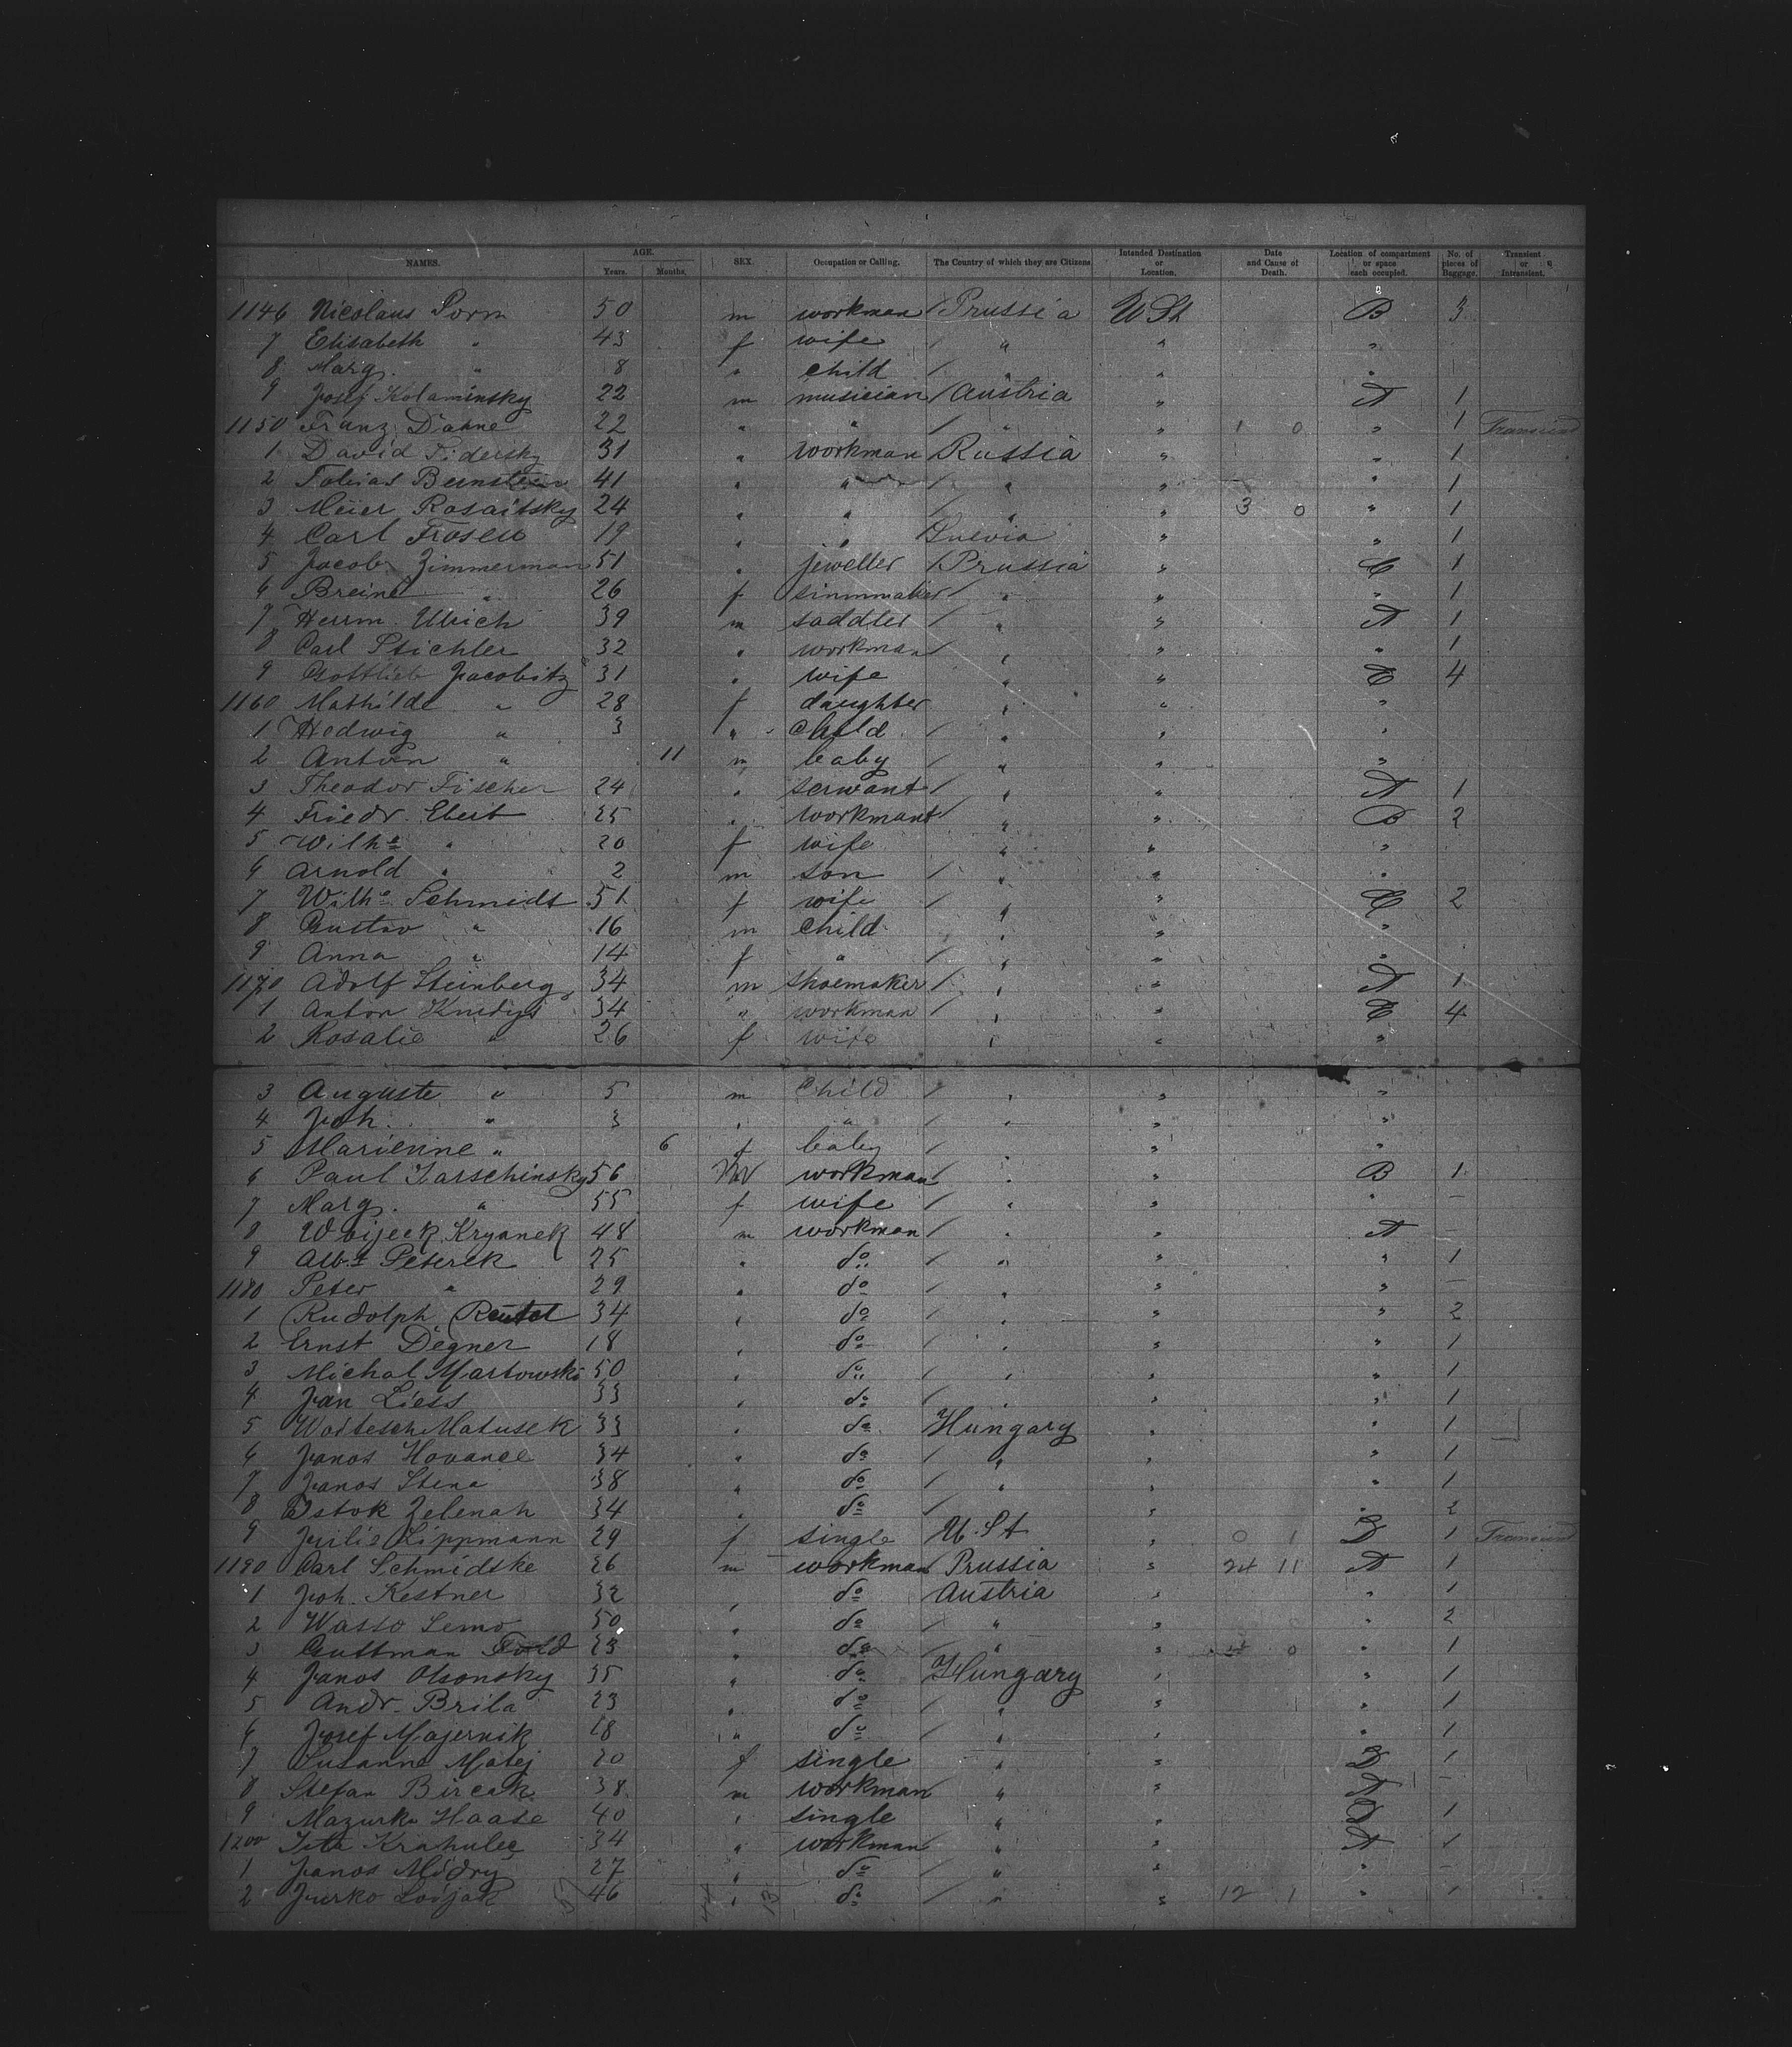 NAMES. AGE. Years. Months. SEX. Occupation or Calling. The Country of which they are Citizens. Intended Destination or Location. Date and Cause of Death. Location of compartment or space each occupied. No. of pieces of Baggage. Transient or Intransient.
1146 Nicolaus Porm 50 m workman / Prussia U St B 3
7 Elisabeth " 43 f wife / " " "
8 Marg. " 8 " child / " " "
9 Josef Kolaminsky 22 m musician / Austria " A 1
1150 Franz Dahne 22 " " / " " 1 0 " 1 Transient
1 David Fidersky 31 " workman Russia " " 1
2 Tobias Bernstein 41 " " / " " " 1
3 Meier Rosaitsky 24 " " / " " 3 0 " 1
4 Carl 19 " " " " 1
5 Jacob Zimmerman 51 " jeweller / Prussia " C 1
6 " 26 f / " " " 1
7 Herrm. Ulrich 39 m saddler / " " A 1
8 Carl Stichler 32 " workman / " " " 1
9 Gottlieb Jacobitz 31 " wife " " C 4
1160 Mathilde " 28 f daughter " " "
1 Hedwig " 3 " child / " " "
2 Anton " 11 m baby / " " "
3 Theodor Fischer 24 " servant / " " A 1
4 Friedr. Ebert 25 " workmant " " B 2
5 Wilhe " 20 f wife " " "
6 Arnold " 2 m son / " " "
7 Wilhe Schmidt 51 f wife / " " C 2
8 Gustav " 16 m child " " "
9 Anna " 14 f " / " " "
1170 Adolf Steinberg 34 m shoemaker / " " A 1
1 Anton 34 " workman / " " C 4
2 Rosalie " 26 f wife " " "
3 Auguste " 5 m child / " " "
4 Joh. " 3 " " / " " "
5 Marienne " 6 f baby / " " "
6 Paul Tarschinsky 56 m workman / " " B 1
7 Marg. " 55 f wife / " " " –
8 Woijeck Kryanek 48 m workman / " " A –
9 Albt Peterek 25 " do / " " " 1
1180 Peter " 29 " do / " " " –
1 Rudolph Reutel 34 " do / " " " 2
2 Ernst Degner 18 " do / " " " 1
3 Michal Martowski 50 " do / " " " 1
4 Jan Liess 33 " do / " " " 1
5 Woitesch Matusek 33 " do Hungary " " 1
6 Janos Hovance 34 " do / " " " 1
7 Janos Stena 38 " do / " " " 1
8 Istok Zelenah 34 " do / " " 2
9 Julie Lippmann 29 f single U. St " 0 1 D 1 Transient
1190 Carl Schmidtke 26 m workman Prussia " 24 11 A 1
1 Joh. Kestner 32 " do Austria " " 1
2 Wasso Semo 50 " do / " " " 2
3 Guttman 23 " do / " " 0 " 1
4 Janos Olsonsky 35 " do Hungary " " 1
5 Andr. Brila 23 " do / " " " 1
6 Josef Majernik 18 " do / " " " 1
7 Susanne Matej 20 f single " " D 1
8 Stefan Bircak 38 m workman " " A –
9 Mazurka Haase 40 " single " " D 1
1200 Krahulec 34 " workman " " A 1
1 Janos Modry 27 " do / " " " –
2 Jurko 46 " do / " " 12 1 " 1